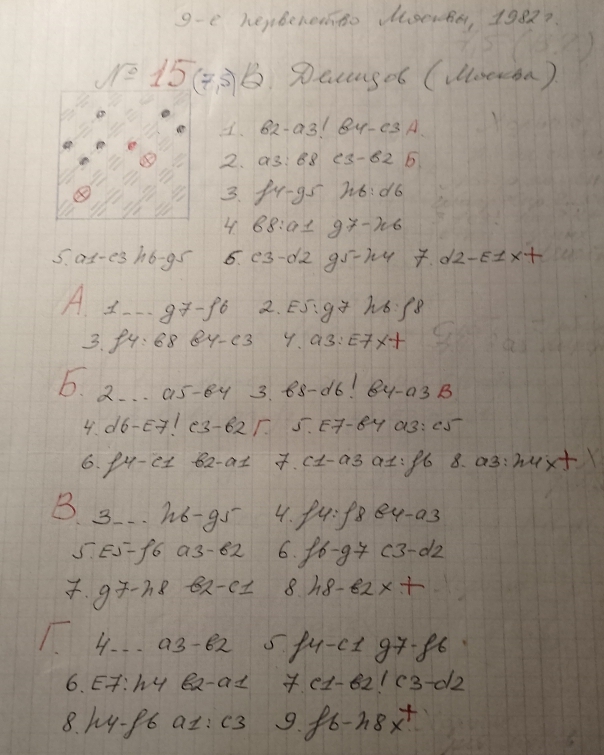 9-е первенство Москвы, 1982 г.
№ 15 (7,5) В. Демидов (Москва).
1. в2-а3! в4-с3 А.
2. а3:в8 с3-в2 Б.
3. f4-g5 h6:d6
4. в8:а1 g7-h6
5. а1-с3 h6-g5 6. с3-d2 g5-h4 7. d2-Е1x+
А. 1... g7-f6 2. Е5:g7 h6:f8
3. f4:в8 в4-с3 4. а3:Е7x+
Б. 2... а5-в4 3. в8-d6! в4-а3 В
4. d6-Е7! с3-в2 Г. 5. Е7-в4 а3:с5
6. f4-с1 в2-а1 7. с1-а3 а1:f6 8. а3:h4x+
В. 3... h6-g5 4. f4:f8 в4-а3
5. Е5-f6 а3-в2 6. f6-g7 с3-d2
7. g7-h8 в2-с1 8. h8-в2x+
Г. 4... а3-в2 5. f4-с1 g7-f6
6. Е7:h4 в2-а1 7. с1-в2! с3-d2
8. h4-f6 а1:с3 9. f6-h8x+